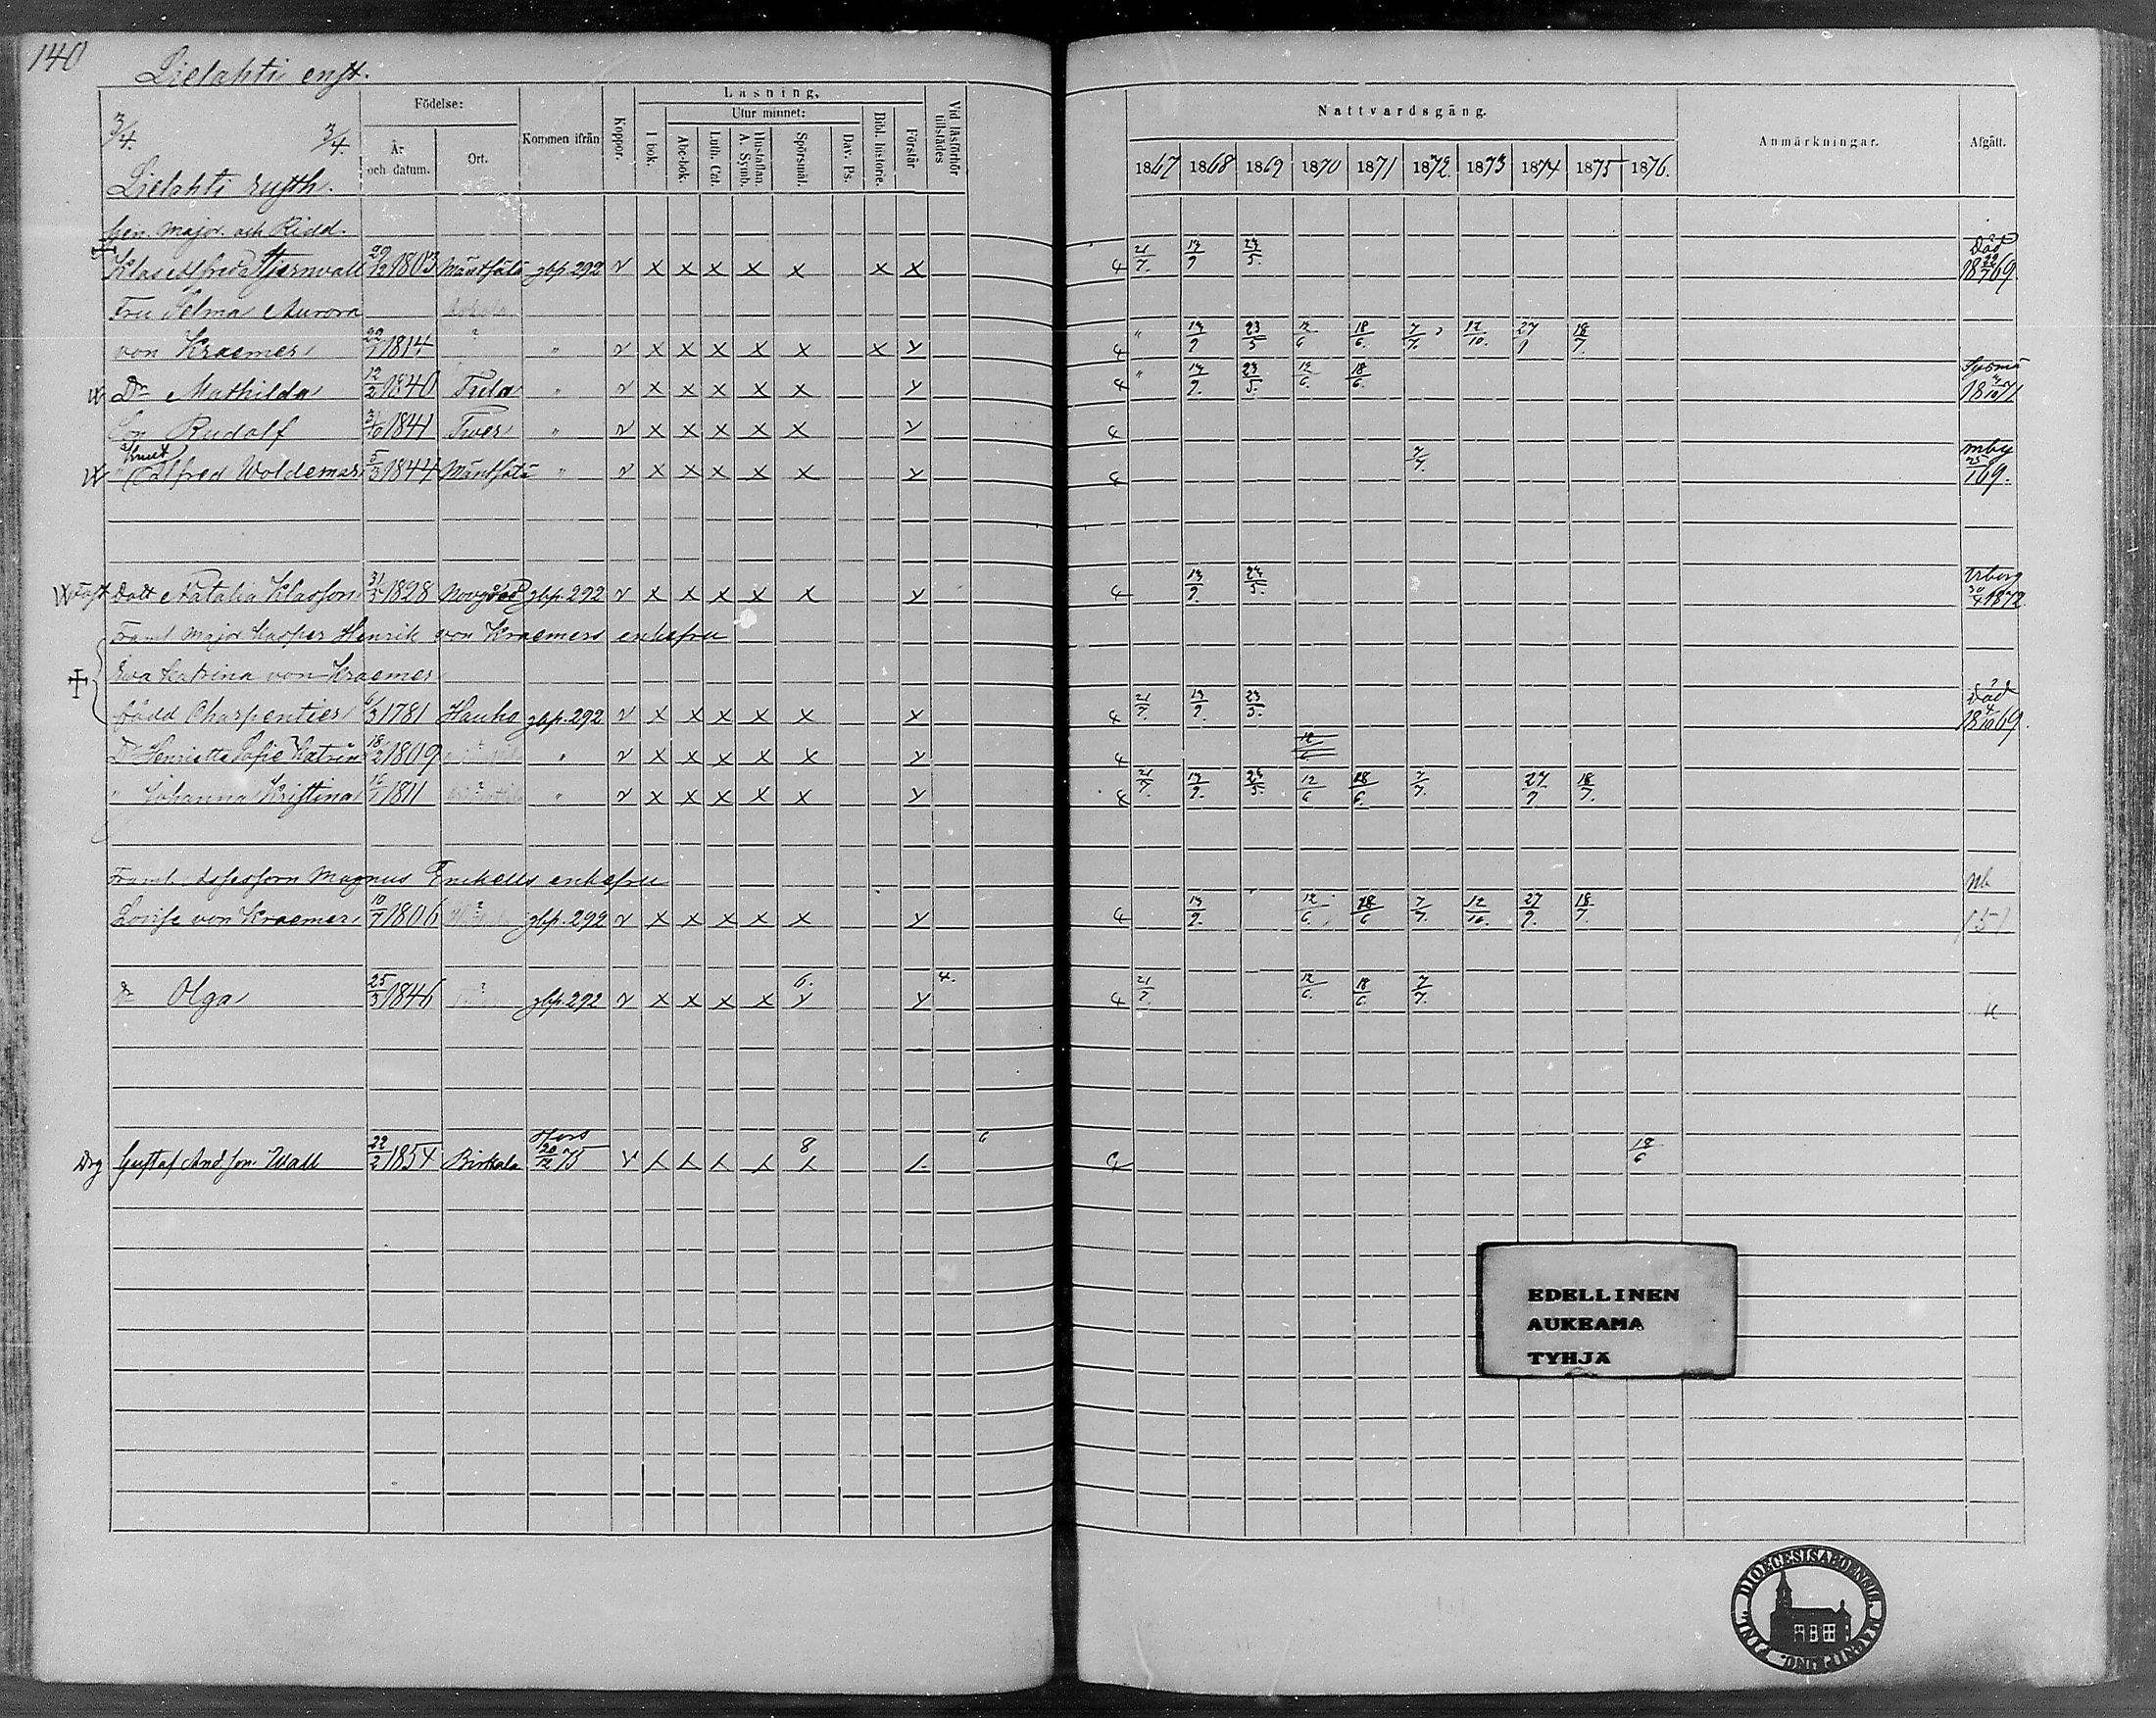 140
Lielahti enst.
Födelse:
Läsning.
Nattvardsgång.
Utur minnet:
3/4. 3/4.
År och datum.
Ort.
Kommen ifrån
Koppor.
I bok.
Abc-bok.
Luth. Cat.
Hustaflan. A. Symb.
Spörsmål.
Dav. Ps.
Bibl. historie.
Förstår
Vid läsförhör tillstädes
1867 1868 1869 1870 1871 1872. 1873 1874 1875 1876.
Anmärkningar.
Afgått.
Lielahti rusth.
Gen. Major. och Ridd.
Klas Alfred Stjernvall 29/12 1803 Mäntsälä gbp. 292 v x x x x x x x 4 21/7. 19/9 23/5. Död 18 22/7 69.
Fru Selma Aurora
von Kraemer 22/7 1814 ? " v x x x x x x y 4 " 19/9 23/5 12/6 18/6. 7/7. 12/10. 27/9 18/7.
Dr Mathilda 12/2 1840 Tula " v x x x x x y 4 " 19/9. 23/5. 12/6. 18/6.
Son Rudolf 1841 Twer " v x x x x x y 4
Knut
" Alfred Woldemar 5/3 1844 Mäntsälä " v x x x x x y 4 7/7. 69.
Dott Natalia Klasson 31/3 1828 gbp. 292 v x x x x x y 4 19/9. 23/5. 30/4 1872
Framl Major Kasper Henrik von Kraemers enkefru
Eva Katrina von Kraemer
född Charpentier 1781 Hauho gbp. 292 v x x x x x x 4 21/7. 19/9. 23/5. Död 18 4/10 69.
Dr Henrietta Sofie Katrina 18/2 1809 ? " v x x x x x y 4 12/6
" Johanna Kristina 16/7 1811 ? " v x x x x x y 4 21/7. 19/9. 23/5. 12/6 18/6. 7/7. 27/9 18/7.
Framl. Assessorn Magnus Enckells enkefru
Lovise von Kraemer 10/7 1806 ? gbp. 292 v x x x x x y 4 19/9. 12/6. 18/6 7/7. 12/10. 27/9. 18/7.
dr Olga 25/3 1846 ? gbp. 292 v x x x x 6. y y 4. 4 21/7. 12/6. 18/6. 7/7.
Drg Gustaf And.son Wall 22/2 1854 Birkala 20/12 75 8 6 18/6
EDELLINEN
AUKEAMA
TYHJÄ